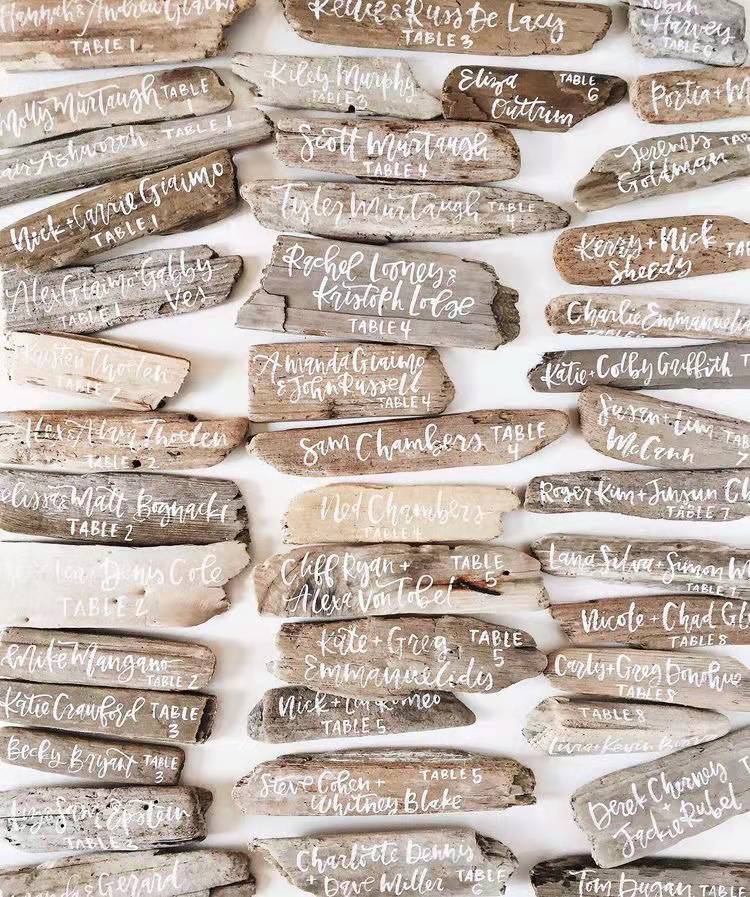 Hannah & Andrew Giaimo
TABLE 1
Molly Murtaugh TABLE
1
Ashworth TABLE 1
Nick + Carrie Giaimo
TABLE 1
Alex Giaimo + Gabby
Ves
TABLE 1
Kristen Thoelen
TABLE 2
Alex & Alana Thoelen
TABLE 2
Matt Bognacki
TABLE 2
Denis Cole
TABLE 2
Mike Mangano
TABLE 2
Katie Crawford TABLE
3
Becky Bryant TABLE
3
Epstein
TABLE 3
& Gerard
Kellie & Russ De Lacy
TABLE 3
Kiley Murphy
TABLE 3
Scott Murtaugh
TABLE 4
Tyler Murtaugh TABLE
4
Rachel Looney &
Kristoph Lodge
TABLE 4
Amanda Giaimo
& John Russell
TABLE 4
Sam Chambers TABLE
4
Ned Chambers
TABLE 4
Cliff Ryan + TABLE
5
Alexa Von Tobel
Kate + Greg TABLE
5
Emmanuelidis
Nick + Romeo
TABLE 5
Steve Cohen + TABLE 5
Whitney Blake
Charlotte Denny
+ Dave Miller TABLE
6
Eliza TABLE
6
Outtrim
Robin
Harvey
TABLE 6
Portia + M
Jeremy TAB
Goldman
Kerry + Nick TA
Sheedy
Charlie Emmanueli
Katie + Colby Griffith T
Susan + Lim TAB
7
McCann
Roger Kim + Jinsun Ch
TABLE 7
Lana Silva + Simon W
TABLE 7
Nicole + Chad Gl
TABLE 8
Carly + Greg Donohue
TABLE 8
TABLE 8
+ Kevin
Derek Cherney TABLE
+
Jackie Rubel
Tom Dugan TABLE